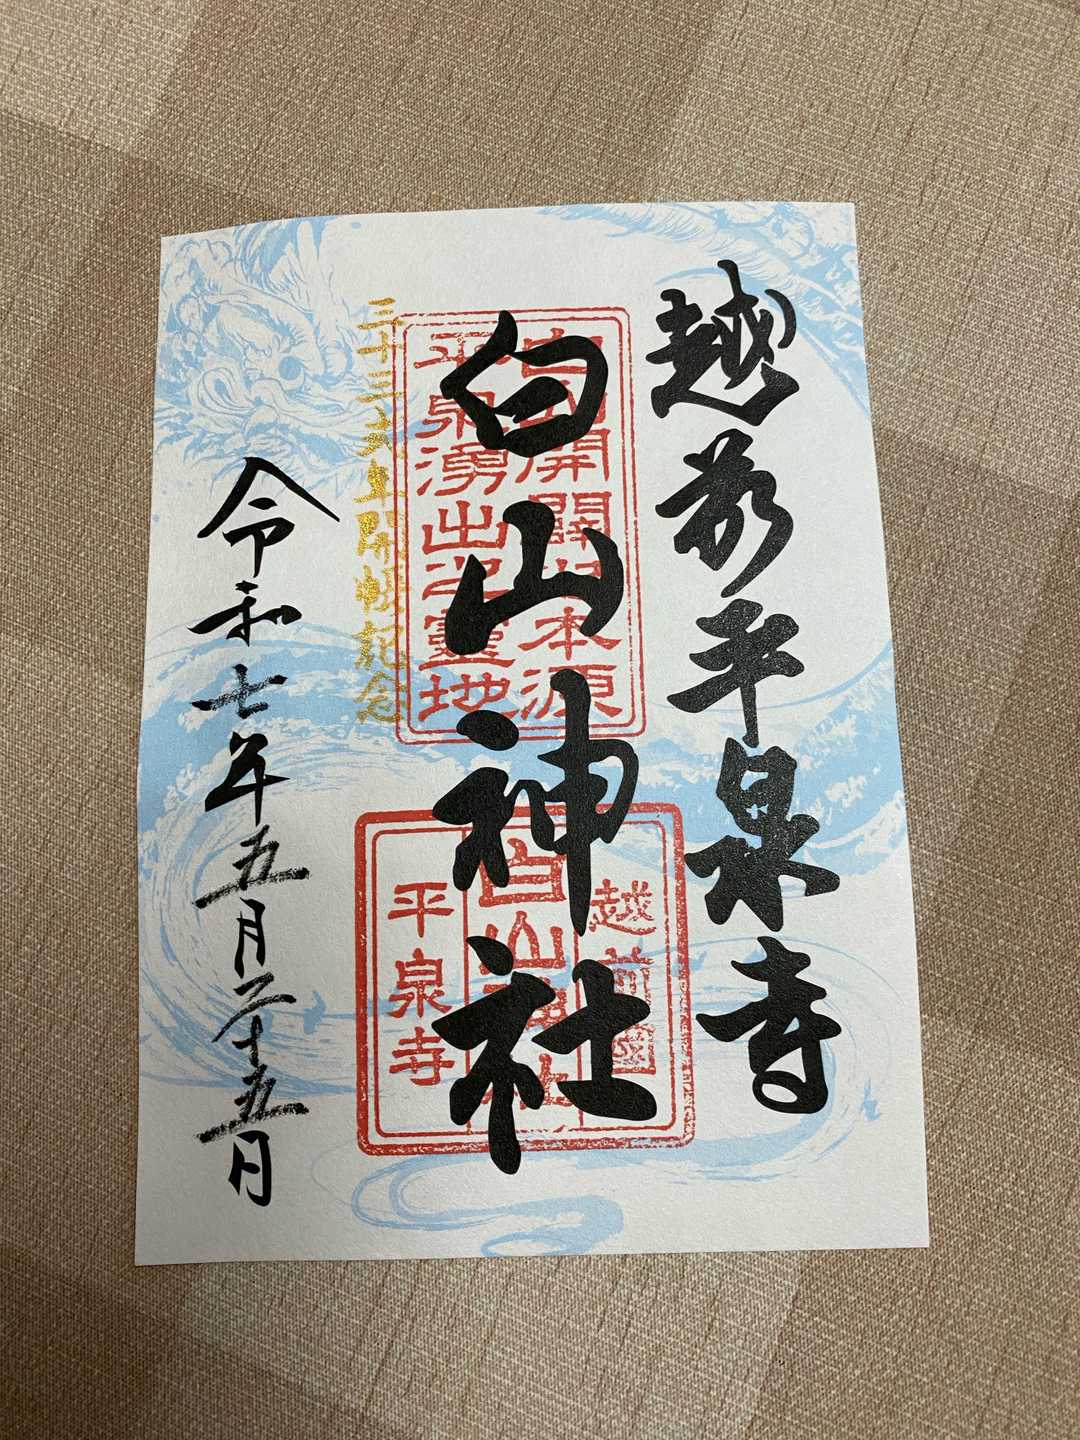 越前平泉寺
白山神社
白山開闢之本源
平泉湧出之靈地
越前國
白山神社
平泉寺
三十三丈年開帳記念
令和七年五月二十五日